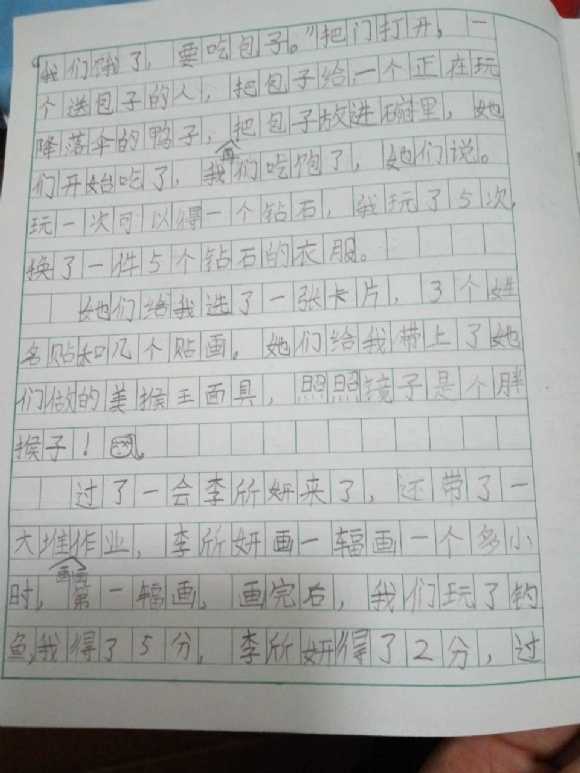 我们饿了，要吃包子。”把门打开，一
个送包子的人，把包子给，一个正在玩
降落伞的鸭子，把包子放进碗里，她
们开始吃了，我们吃饱了，她们说。
再
玩一次可以得一个钻石，我玩了5次，
换了一件5个钻石的衣服。
她们给我选了一张卡片，3个姓
名贴和几个贴画。她们给我带上了她
们做的美猴王面具，照照镜子是个胖
猴子！
过了一会李所妍来了，还带了一
大堆作业，李所妍画一辐画一个多小
画画
时，第一辐画，画完后，我们玩了钓
鱼，我得了5分，李所妍得了2分，过